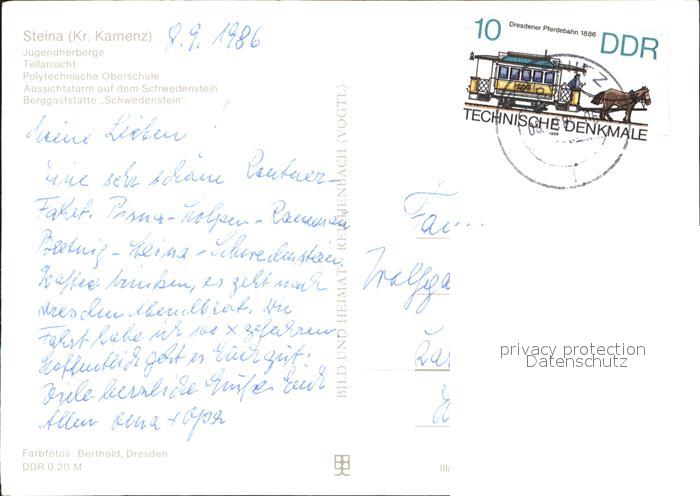 Steina (Kr. Kamenz)
Jugendherberge
Teilansicht
Polytechnische Oberschule
Aussichtsturm auf dem Schwedenstein
Berggaststätte „Schwedenstein"
8.9. 1986
10
Dresdener Pferdebahn 1886
DDR
TECHNISCHE DENKMALE
1986
Meine Lieben!
Eine sehr schöne Rentner-
Fahrt. Pirna-Stolpen-
-Steina-Schwedenstein.
Kaffee trinken, es geht nach
Dresden Abendbrot. Die
Fahrt habe ich 100 x gefahren
Hoffentlich geht es Euch gut.
Viele herzliche Grüße Euch
Allen Oma + Opa
Fam.
Wolfga
BILD UND HEIMAT · REICHENBACH (VOGTL)
privacy protection
Datenschutz
Farbfotos: Berthold, Dresden
DDR 0,20 M
III/